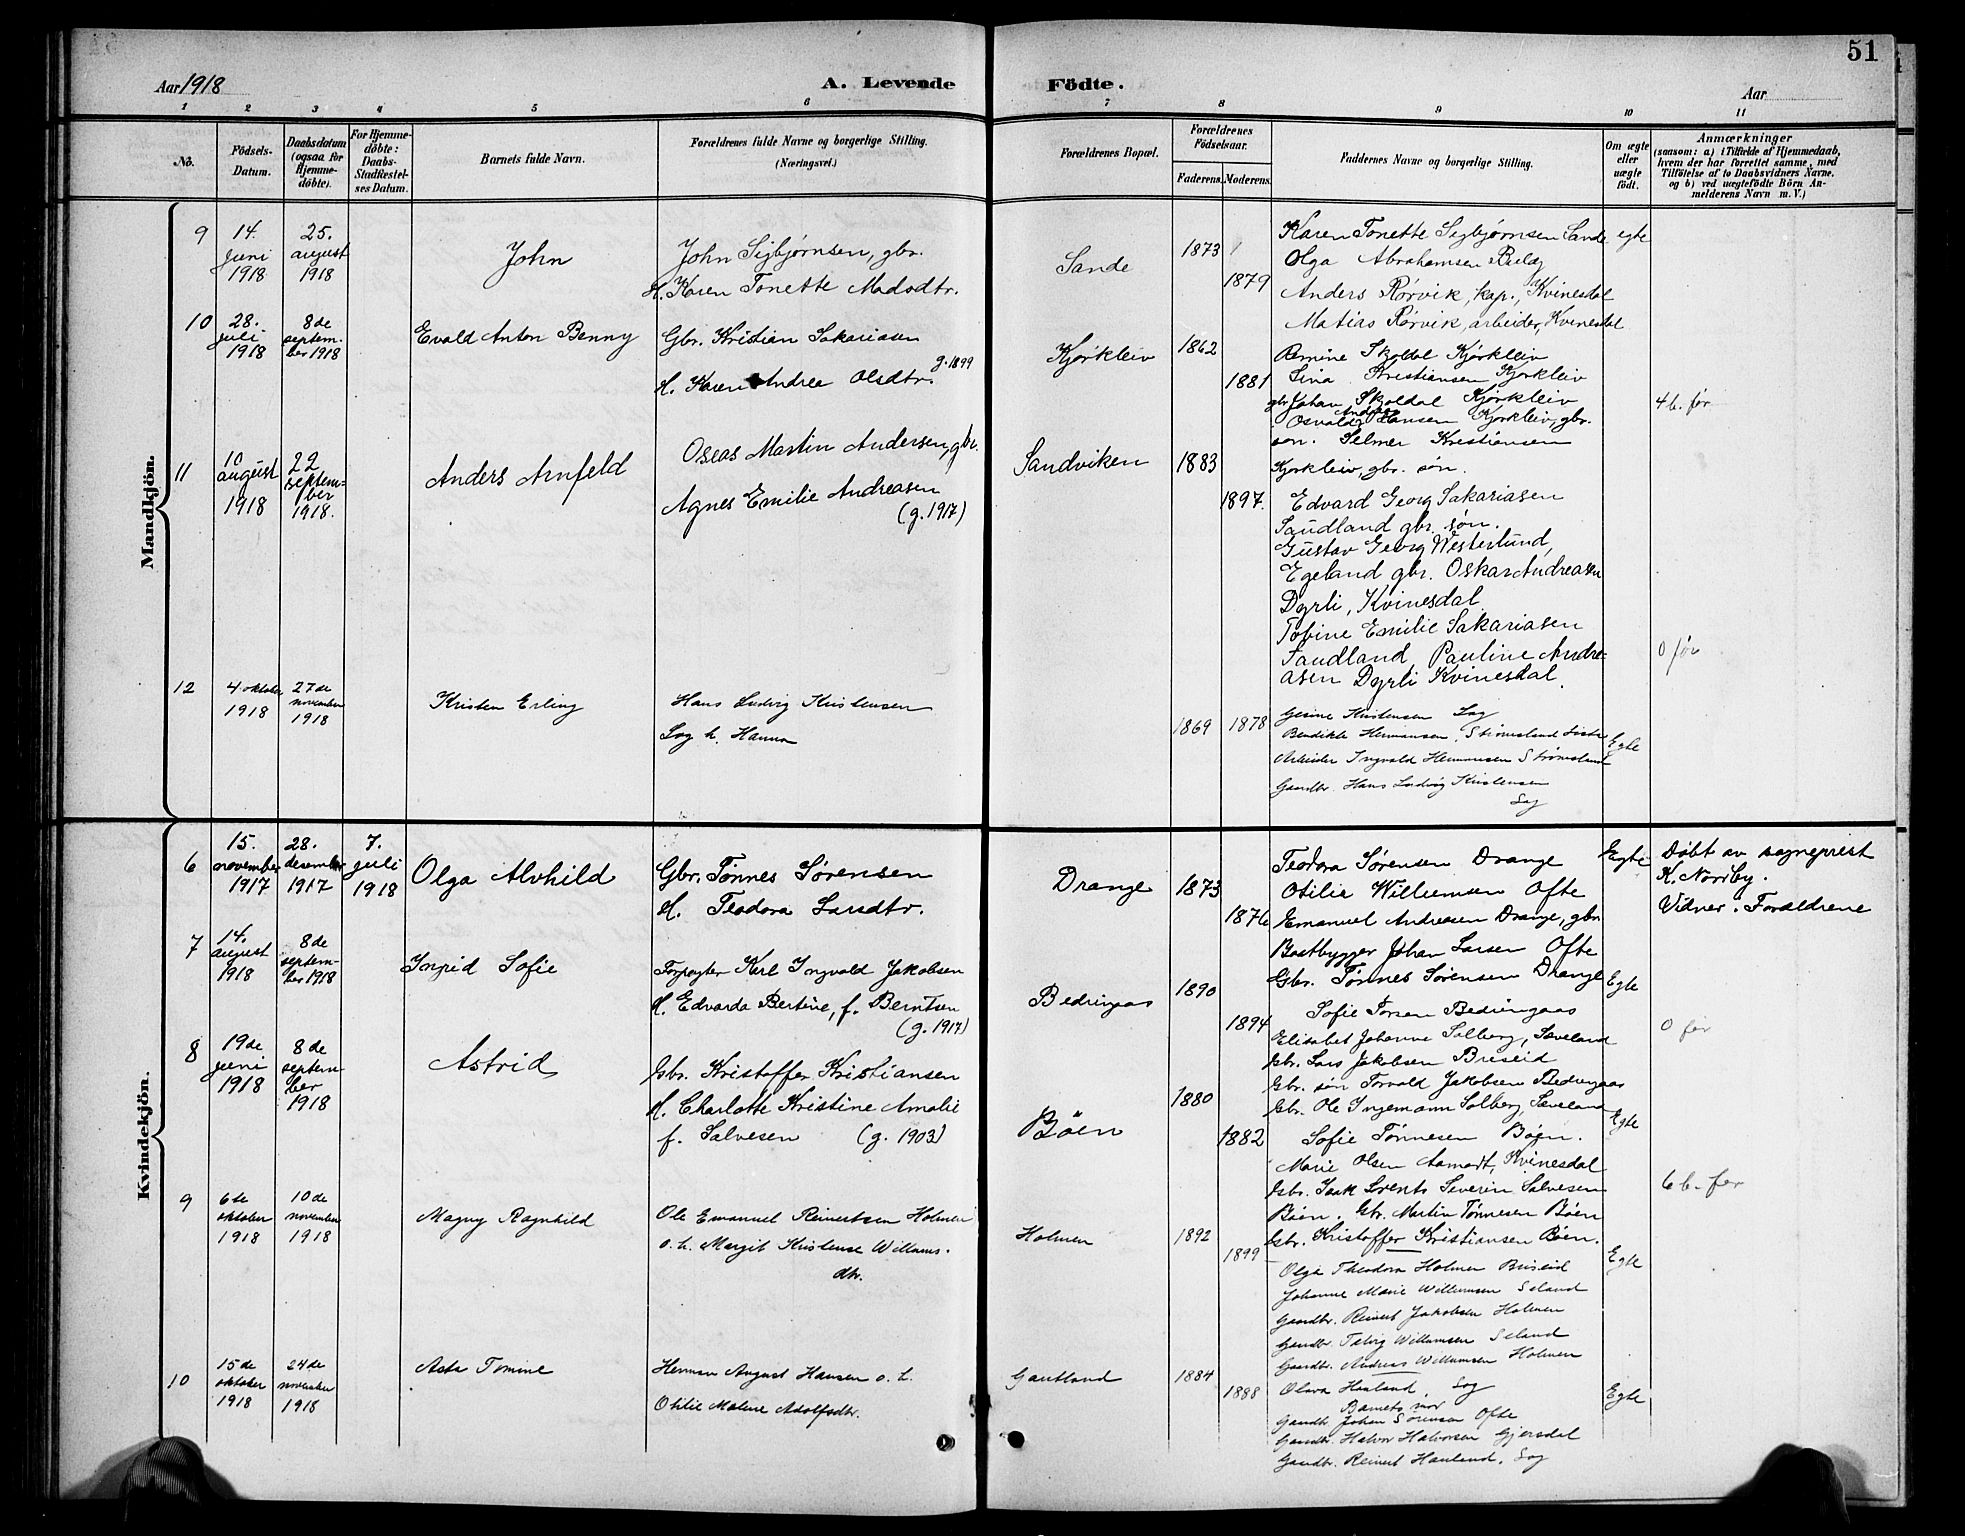 51
Aar 1918
A. Levende Födte.
Aar
1 2 3 4 5 6 7 8 9 10 11
No.
Födsels-Datum.
Daabsdatum (ogsaa for Hjemmedöbte).
For Hjemmedöbte: Daabs-Stadfæstelses Datum.
Barnets fulde Navn.
Forældrenes fulde Navne og borgerlige Stilling. (Næringsvei.)
Forældrenes Bopæl.
Forældrenes Födselsaar.
Faderens. Moderens.
Faddernes Navne og borgerlige Stilling.
Om ægte eller uægte födt.
Anmærkninger
(saasom: a) i Tilfælde af Hjemmedaab,
hvem der har forrettet samme, med
Tilföielse af to Daabsvidners Navne.
og b) ved uægtefödte Börn An-
melderens Navn m. V.)
Mandkjön.
9
14. juni 1918
25. august 1918
John
John Sigbjørnsen, gbr.
H. Karen Tonette Madsdtr.
Sande
1873
1879
Karen Tonette Sigbjørnsen Sande
Olga Abrahamsen
Anders Rørvik, kap., Kvinesdal
Matias Rørvik, arbeider, Kvinesdal
egte
10
28. juli 1918
8de september 1918
Evald Anton Benny
Gbr. Kristian Sakariasen
H. Karen Andrea Olsdtr. g. 1899
Kjørkleiv
1862
1881
Skoldal Kjørkleiv
Sina Kristiansen Kjørkleiv
gbr. Johan Skoldal Kjørkleiv
Osvald Andreas Hansen Kjørkleiv, gbr.
søn. Selmer Kristiansen
Kjørkleiv, gbr. søn.
4 b. før
11
10 august 1918
22 september 1918.
Anders Arnfeld
Oseas Martin Andersen, gbr.
Agnes Emilie Andreasen
(g. 1917)
Sandviken
1883
1897.
Edvard Georg Sakariasen
Saudland gbr. søn.
Gustav Georg Westerlund,
Egeland, gbr. Oskar Andreasen
Dyrli, Kvinesdal
Tobine Emilie Sakariasen
Saudland, Pauline Andre-
asen Dyrli Kvinesdal.
0 før
12
4 oktober 1918
27de november 1918
Kristen Erling
Hans Ludvig Kristensen
Log h. Hanna
1869
1878
Gesine Kristensen Log
Bendikte Hermansen, Strømsland
Arbeider Ingvald Hermansen Strømsland
Gaardbr. Hans Ludvig Kristensen
Log
Egte
Kvindekjön.
6
15. november 1917
28. desember 1917
7. juli 1918
Olga Alvhild
Gbr. Tønnes Sørensen
H. Teodora Larsdtr.
Drange
1873
1876
Teodora Sørensen Drange
Otilie Willumsen Ofte
Emanuel Andreasen Drange, gbr.
Baatbygger Johan Larsen Ofte
Gbr. Tønnes Sørensen Drange
Egte
Døbt av sogneprest
K. Norrby.
Vidner: Forældrene
7
14. august 1918
8de september 1918
Ingrid Sofie
Forpagter Karl Ingvald Jakobsen
H. Edvarda Bertine, f. Berntsen
(g. 1917)
Bedringaas
1890
1894
Sofie Torsen Bedringaas
Elisabet Johanne Solberg, Sæveland
Gbr. Lars Jakobsen Briseid
Gbr. søn Torvald Jakobsen Bedringaas
Gbr. Ole Ingemann Solberg, Sæveland
Egte
0 før
8
19de juni 1918
8de september 1918
Astrid
Gbr. Kristoffer Kristiansen
H. Charlotte Kristine Amalie
f. Salvesen (g. 1903)
Bøen
1880
1882
Sofie Tønnesen Bøen.
Marie Olsen Aamodt, Kvinesdal
Gbr. Isak Lorents Severin Salvesen
Bøen. Gbr. Martin Tønnesen Bøen
Gbr. Kristoffer Kristiansen Bøen.
Egte
6 b. før
9
6te oktober 1918
10de november 1918
Magny Ragnhild
Ole Emanuel Reinertsen Holmen
o. h. Margit Kristense Willums-
dtr.
Holmen
1892
1899
Olga Theodora Holmen Briseid
Johanne Marie Willumsen Seland
Gaardbr. Reinert Jakobsen Holmen
Gaardbr. Willumsen Seland
Gaardbr. Andreas Willumsen Holmen
Egte
10
15de oktober 1918
24de november 1918
Asta Tomine
Herman August Hansen o. h.
Otilie Malene Adolfsdtr.
Gautland
1884
1888
Olava Hauland, Log
Barnets mor
Gaardbr. Johan Sørensen Ofte
Gaardbr. Halvor Halvorsen Gjersdal
Gaardbr. Reinert Hauland, Log
Egte